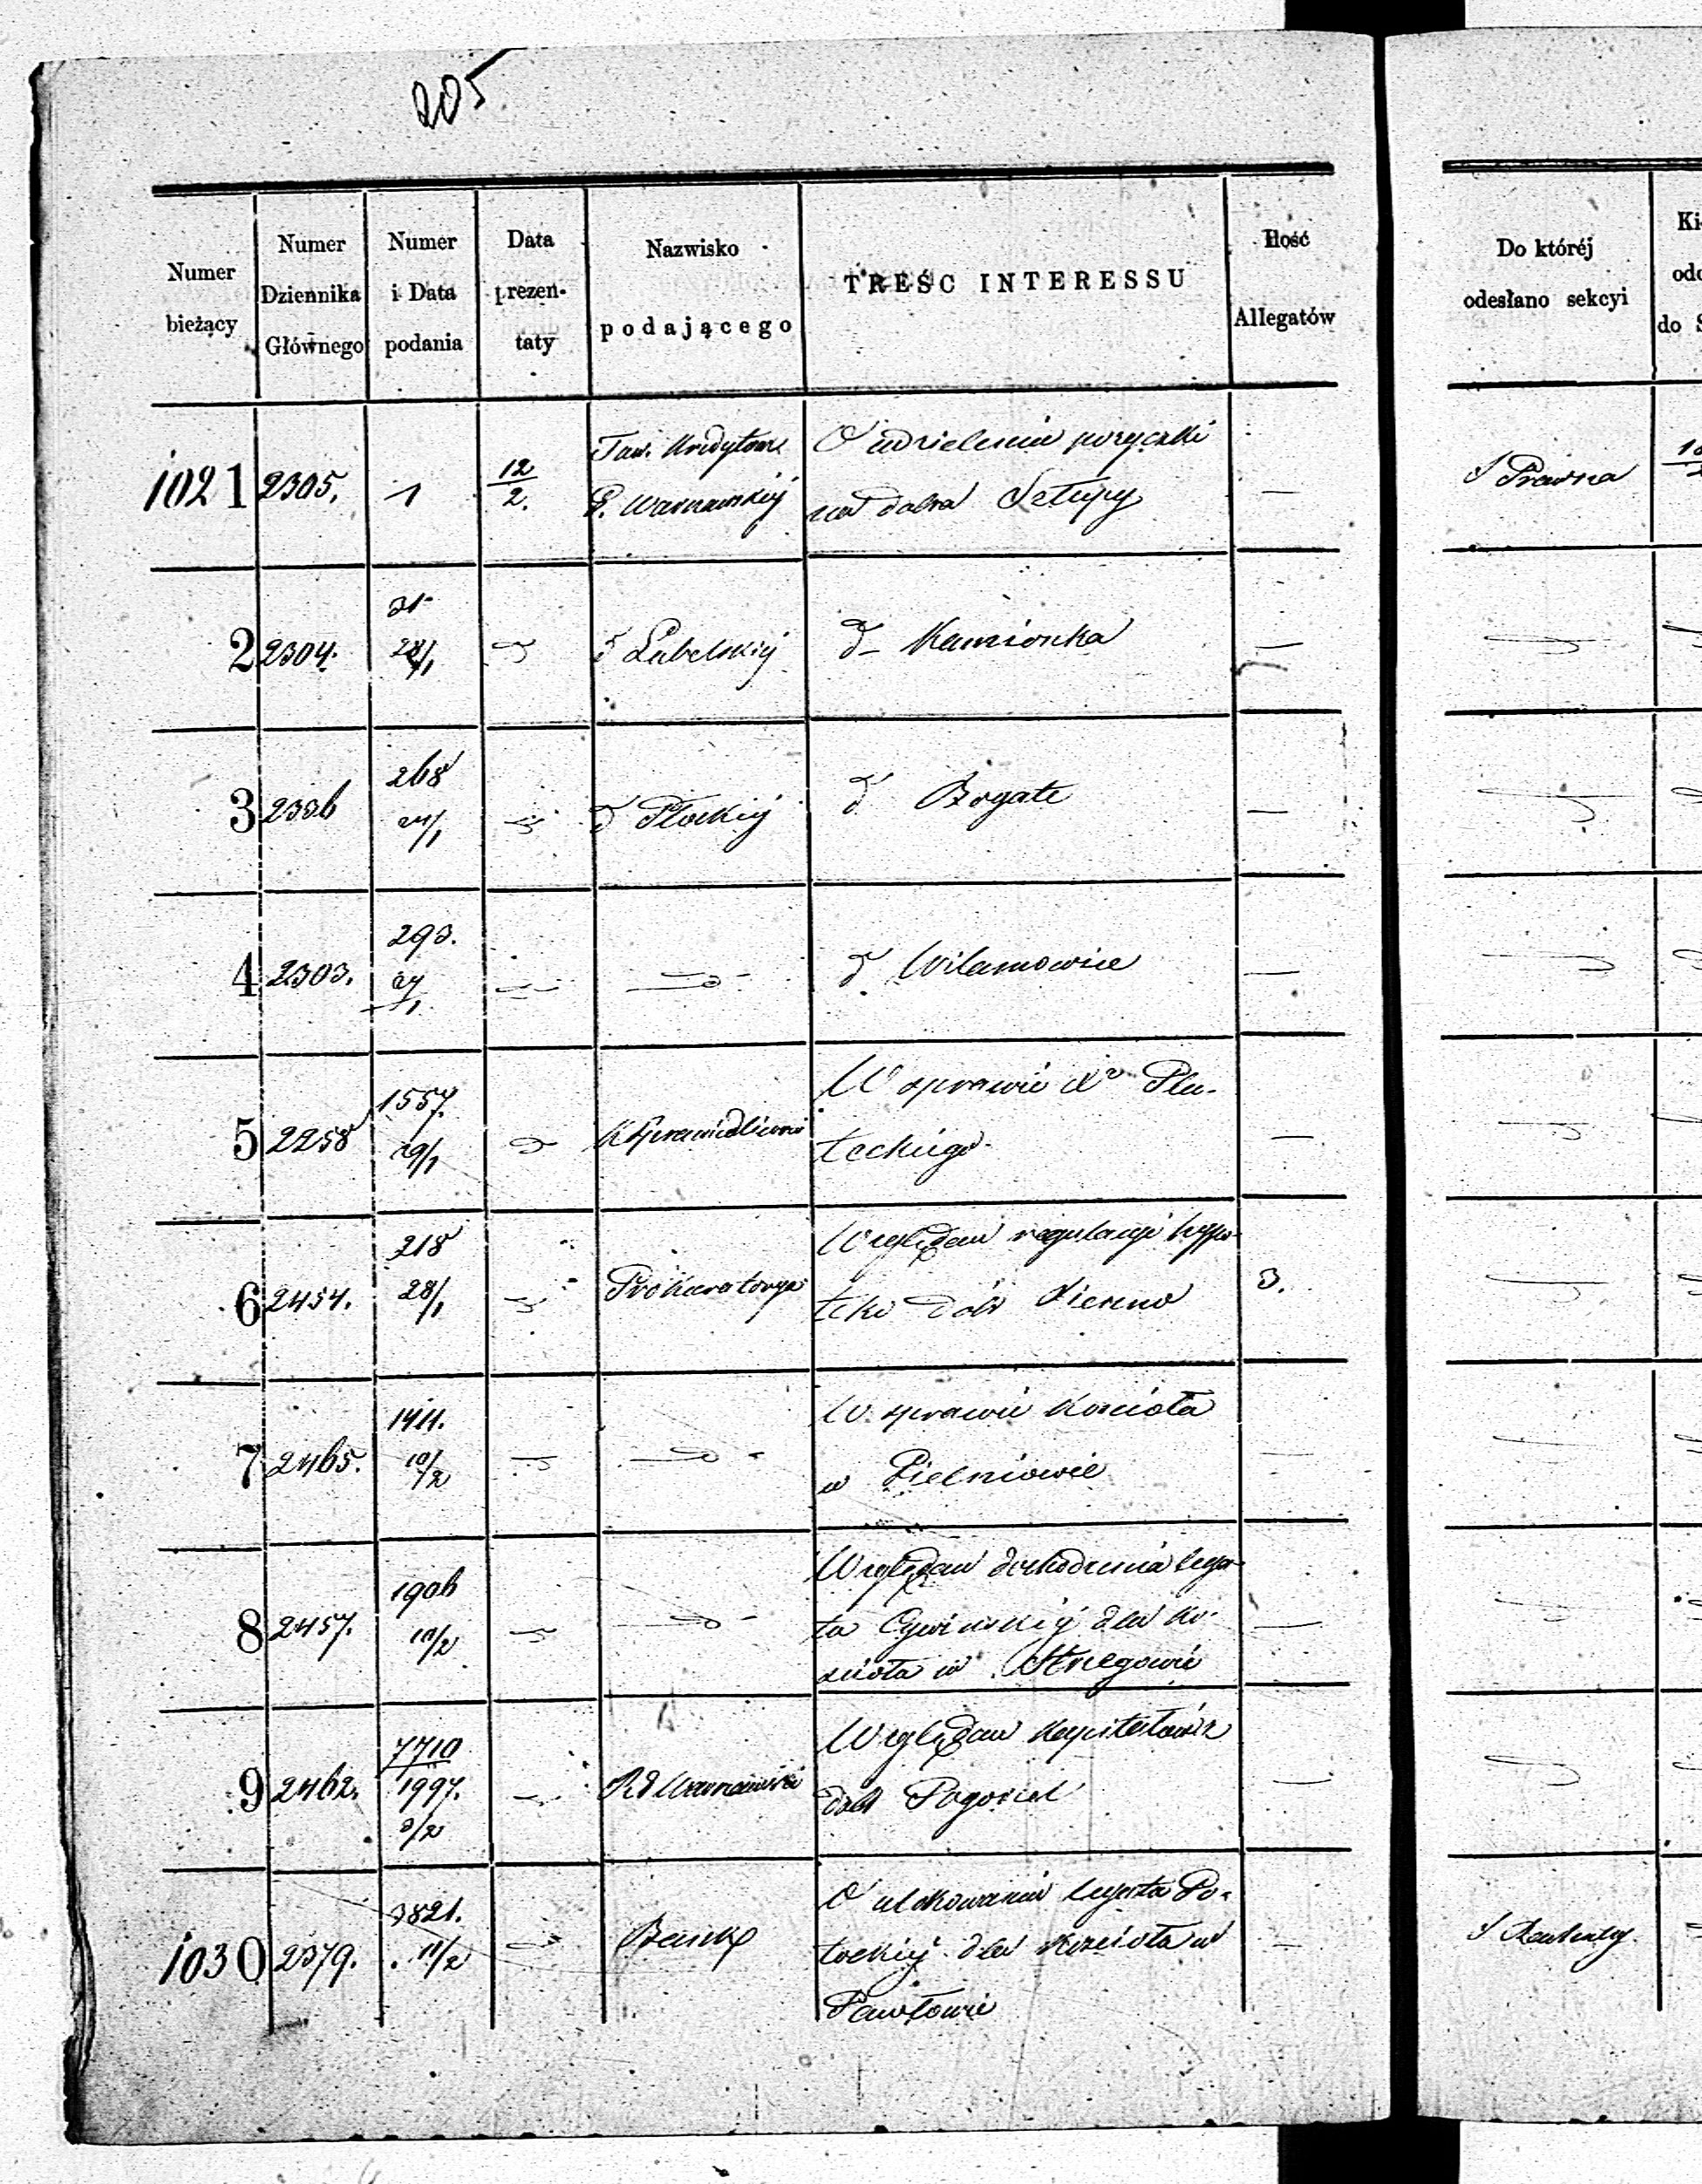 205
Numer bieżący
Numer Dziennika Głównego
Numer i Data podania
Data prezen- taty
Nazwisko podającego
TREŚĆ INTERESSU
Ilość Allegatów
Do któréj odesłano sekcyi
1021 2305. 1 12/2. Tow. Kredytowe G. Warszawskiej O udzielenie pożyczki
na dobra Słupy — S Prawna
2 2304. 31 28/1 d Lubelskiej d Kamionka —
3 2306 268 24/1 d Płockiej d Bogate —
4 2303. 293. 27/1 d Wilamowice —
5 2258 1557. 29/1 K Sprawiedliwości W sprawie Xa Plu-
teckiego —
6 2454. 218 28/1 Prokuratorya Względem regulacyi hypo-
teki dóbr Sienno 3.
7 2465. 1411. 10/2 W sprawie Kościoła
w Pielniowie —
8 2457. 1906 10/2 Względem dochodzenia lega-
ta Cywińskiej dla Ko-
ścioła w Strzegowie —
9 2462. 7710 1997. 3/2 R G Warszawski Względem Kapitałów z
dóbr Pogorzel —
1030 2379. 3821. 11/2 Bank O ulokowanie legata Po-
tockiej dla Kościoła w
Pawłowie —